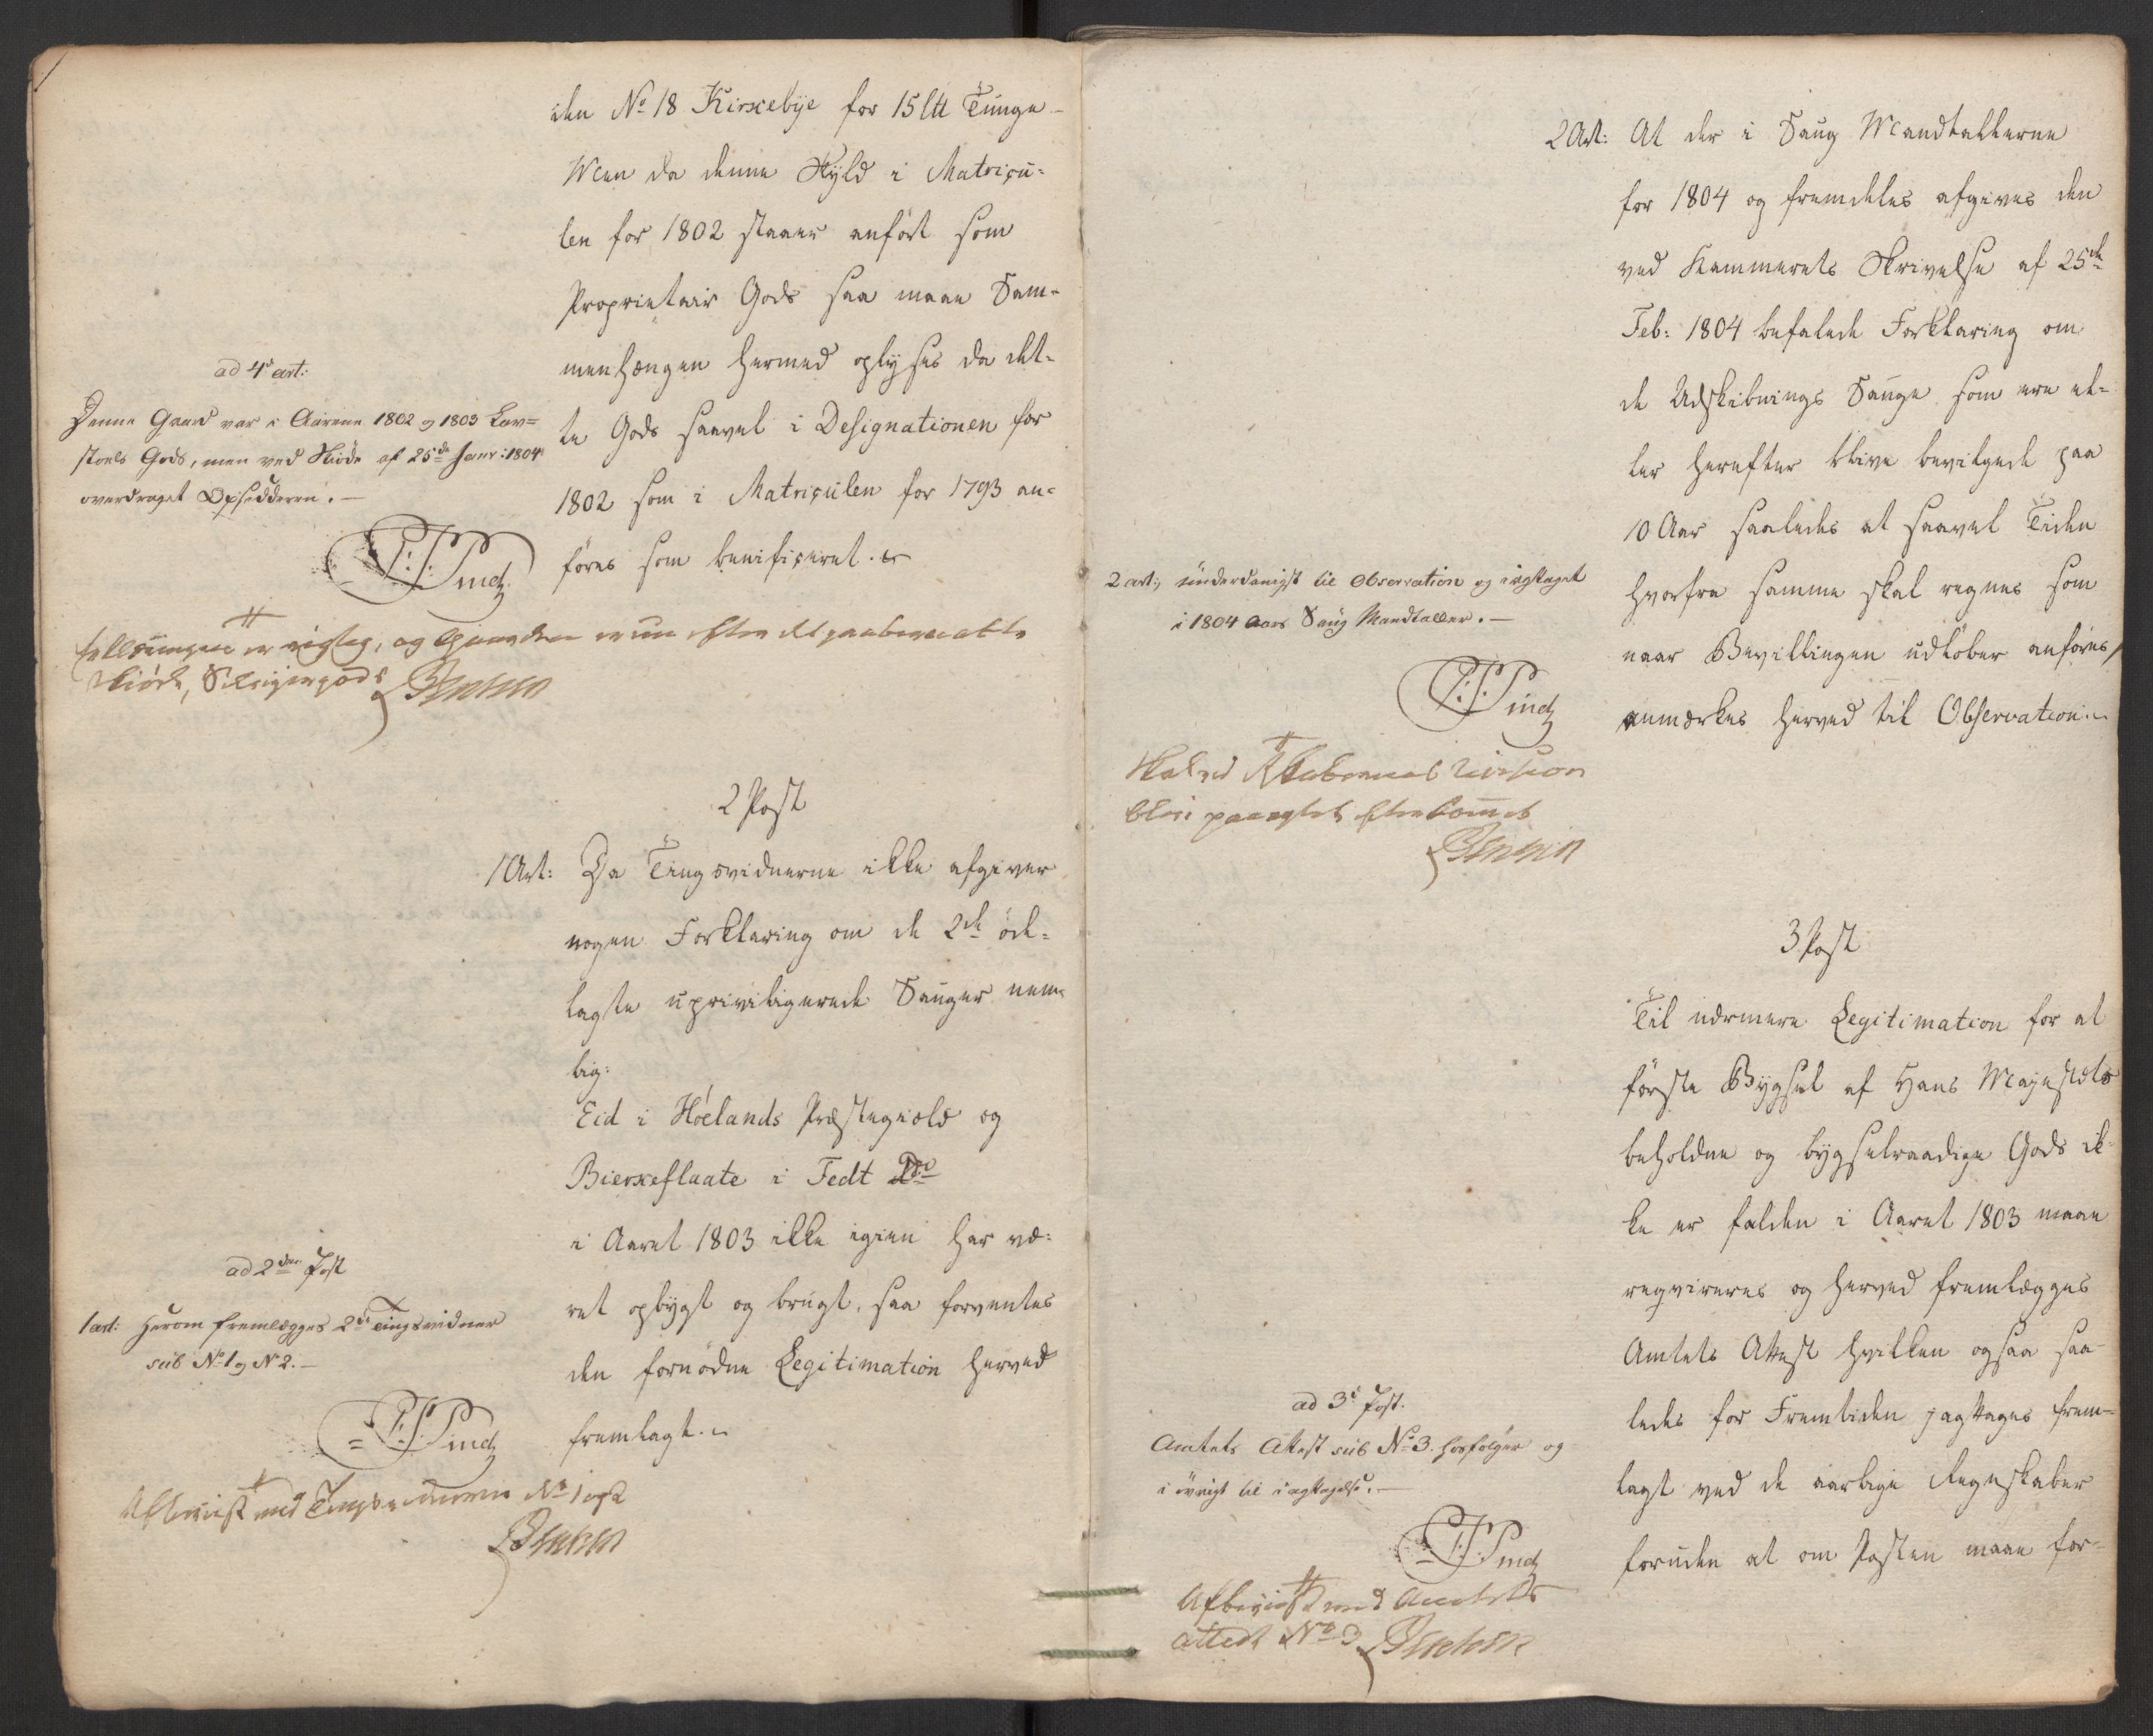 den No 18 Kirxebÿe for 15 L℔ Tunge -
Men da denne Skÿld i Matriçu-
len for 1802 staaer anfört som
Proprietair Gods saa maae Sam-
menhængen hermed oplÿses da det-
te Gods saavel i Designationen for
1802 som i Matriçulen for 1793 an-
föres som benifiçeret.
ad 4de art:
Denne Gaard var i Aarene 1802 og 1803 Lav-
stoels Gods, men ved Skiöde af 25de Janr: 1804
overdraget Opsidderen. -
P: S: Pind
er rigtig, og er nu efter det paaberaabte
Skiöde, Selveiergods
2 Post
1 Art: Da Tingsvidnerne ikke afgiver
nogen Forklaring om de 2de öde-
lagste upriviligerede Sauger nem-
lig:
Eid i Höelands Præstegield og
Bierxeflaate i Fedt Do
i Aaret 1803 ikke igien har væ-
ret opbÿgt og brugt, saa forventes
den fornödne Legitimation herved
fremlagt.
ad 2den Post
1 art: Herom fremlægges 2de Tingsvidner
sub No 1 og No 2. -
P: S: Pind
Afbeviist med Tingsvidnerne No 1 og 2
2 Art: At der i Saug Mandtallerne
for 1804 og fremdeles afgives den
ved Kammerets Skrivelse af 25de
Feb: 1804 befalede Forklaring om
de Udskibnings Sauge som ere el-
ler herefter blive bevilgede paa
10 Aar saaledes at saavel Tiden
hvorfra samme skal regnes som
naar Bevillingen udlöber anföres,
anmærkes herved til Observation.
2 art:, underdanigst til Observation og iagttaget
i 1804 Aars Saug Mandtaller. -
P: S: Pind
Skal ved Revision
blive paaagtet efterkommet
3 Post
Til nærmere Legitimation for at
förste Bÿgsel af Hans Majestæts
beholdne og bÿgselraadige Gods ik-
ke er falden i Aaret 1803 maae
reqvireres og herved fremlægges
Amtets Attest hvilken ogsaa saa-
ledes for Fremtiden jagttages frem-
lagt ved de aarlige Regnskaber
foruden at om Posten maae for-
ad 3de Post.
Amtets Attest sub No 3. hosfölger og
i övrigt til iagttagelse. -
P: S: Pind
Afbeviist med Amtets
attest No 3